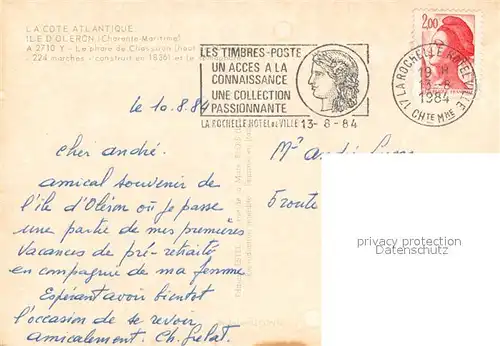 LA COTE ATLANTIQUE
ILE D'OLERON (Charente-Maritime)
A 2710 Y - Le phare de Chassiron (haut
224 marches - construit en 1836) et le
2,00
LES TIMBRES-POSTE
UN ACCES A LA
CONNAISSANCE
UNE COLLECTION
PASSIONNANTE
LA ROCHELLE HOTEL DE VILLE 13-8-84
17 LA ROCHELLE HOTEL VILLE
19 H
13-8
1984
CHTE MME
le 10.8.84
Cher andré.
amical souvenir de
l'île d'Oléron où je passe
une partie de mes premières
vacances de pré-retraité
en compagnie de ma femme
Espérant avoir bientôt
l'occasion de se revoir
amicalement. Ch.
Mr André
5 route
privacy protection
Datenschutz